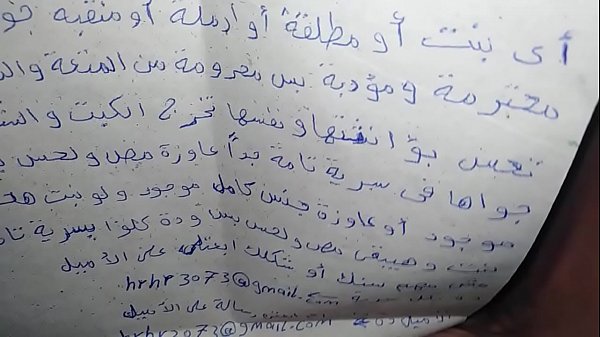 أى بنت أو مطلقة أو ارملة أو منقبه
محترمة ومؤدبة بس محرومة من المتعة
تحس بؤ انثتها ونفسها تخرج الكبت
جواها فى سرية تامة جداً عاوزة مص ولحس
موجود أو عاوزة جنس كامل موجود ولو بنت
بنت وهيبقى مص ولحس بس ودة كلوا بسرية
مش مهم سنك أو شكلك ابعتلى على الأميل
hrhr3073@gmail.com
رسالة على الأميل
hrhr3073@gmail.com